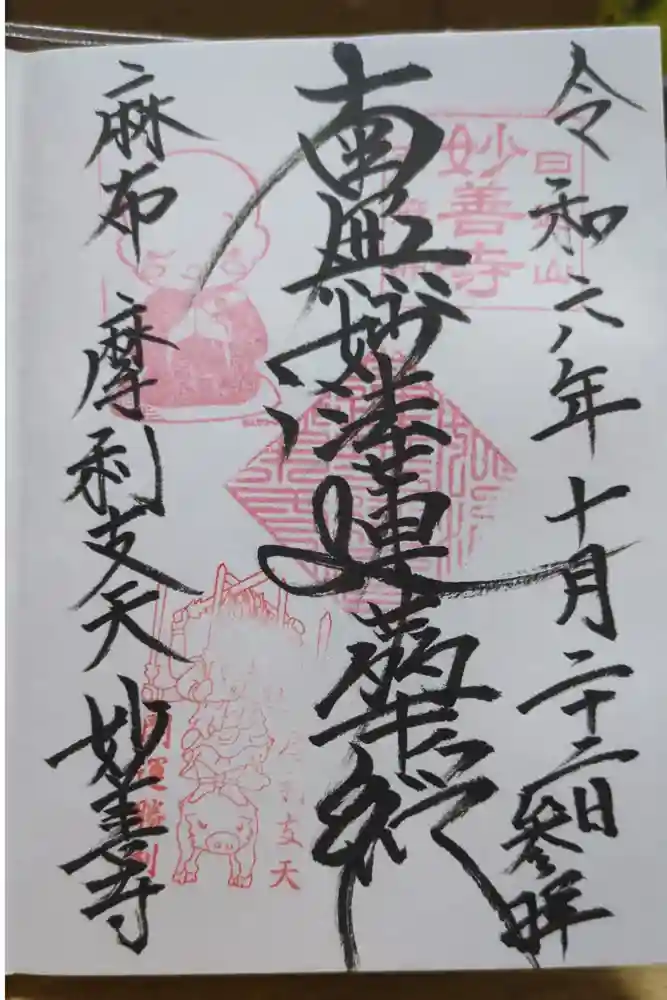 令和六年十月二十二日参拝
南無妙法蓮華経
麻布 摩利支天 妙善寺
妙善寺
摩利支天
開運勝利